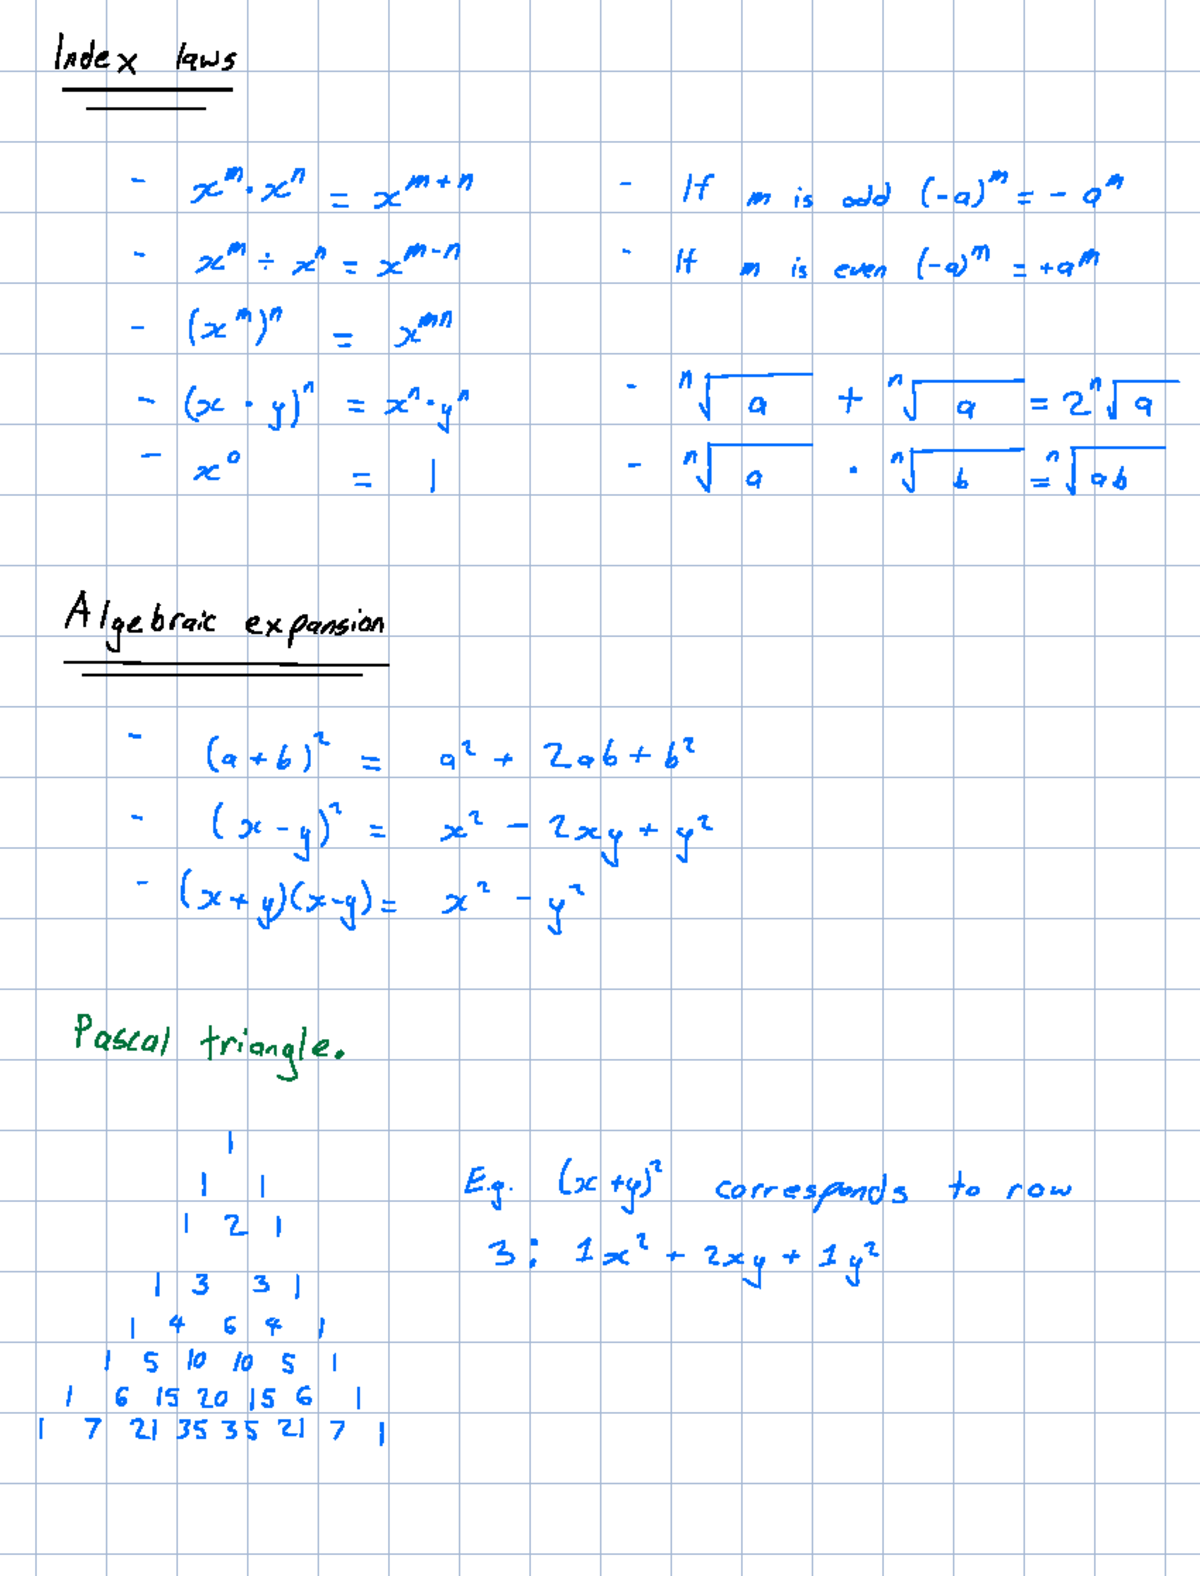 Index laws
- xᵐ · xⁿ = xᵐ⁺ⁿ
- xᵐ ÷ xⁿ = xᵐ⁻ⁿ
- (xᵐ)ⁿ = xᵐⁿ
- (x · y)ⁿ = xⁿ · yⁿ
- x⁰ = 1
- If m is odd (-a)ᵐ = - aᵐ
- If m is even (-a)ᵐ = +aᵐ
- ⁿ√a + ⁿ√a = 2ⁿ√a
- ⁿ√a · ⁿ√b = ⁿ√ab
Algebraic expansion
- (a + b)² = a² + 2ab + b²
- (x - y)² = x² - 2xy + y²
- (x + y)(x - y) = x² - y²
Pascal triangle.
1
1 1
1 2 1
1 3 3 1
1 4 6 4 1
1 5 10 10 5 1
1 6 15 20 15 6 1
1 7 21 35 35 21 7 1
E.g. (x + y)² corresponds to row
3: 1x² + 2xy + 1y²